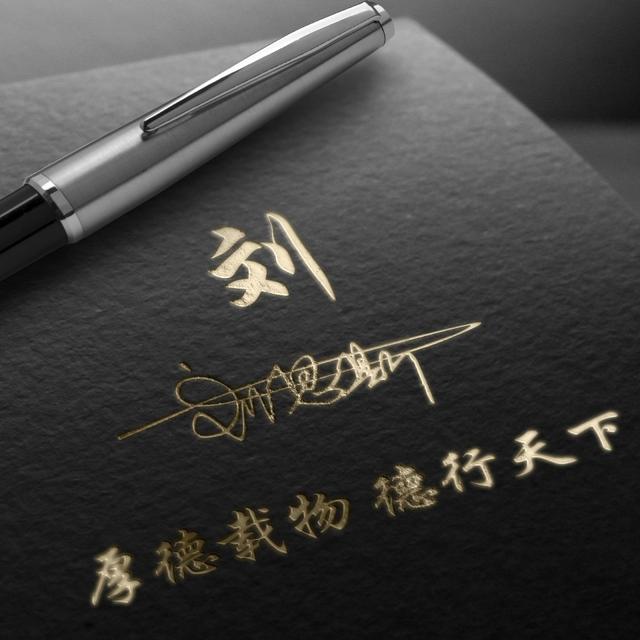 刘
厚德载物 德行天下